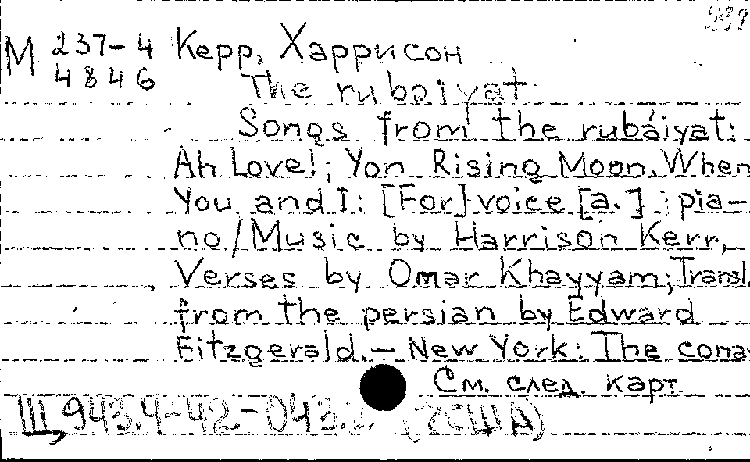 M 237-4 Керр, Харрисон
4846 The rubaiyat.
Songs from the rubáiyat:
Ah Love!; Yon Rising Moon. When
You and I: [For] voice [a.]; pia-
no/Music by Harrison Kerr,
Verses by Omar Khayyam; Transl.
from the persian by Edward
Fitzgerald. — New York: The
См. след. карт
Щ 943.4-42-043. (7США)